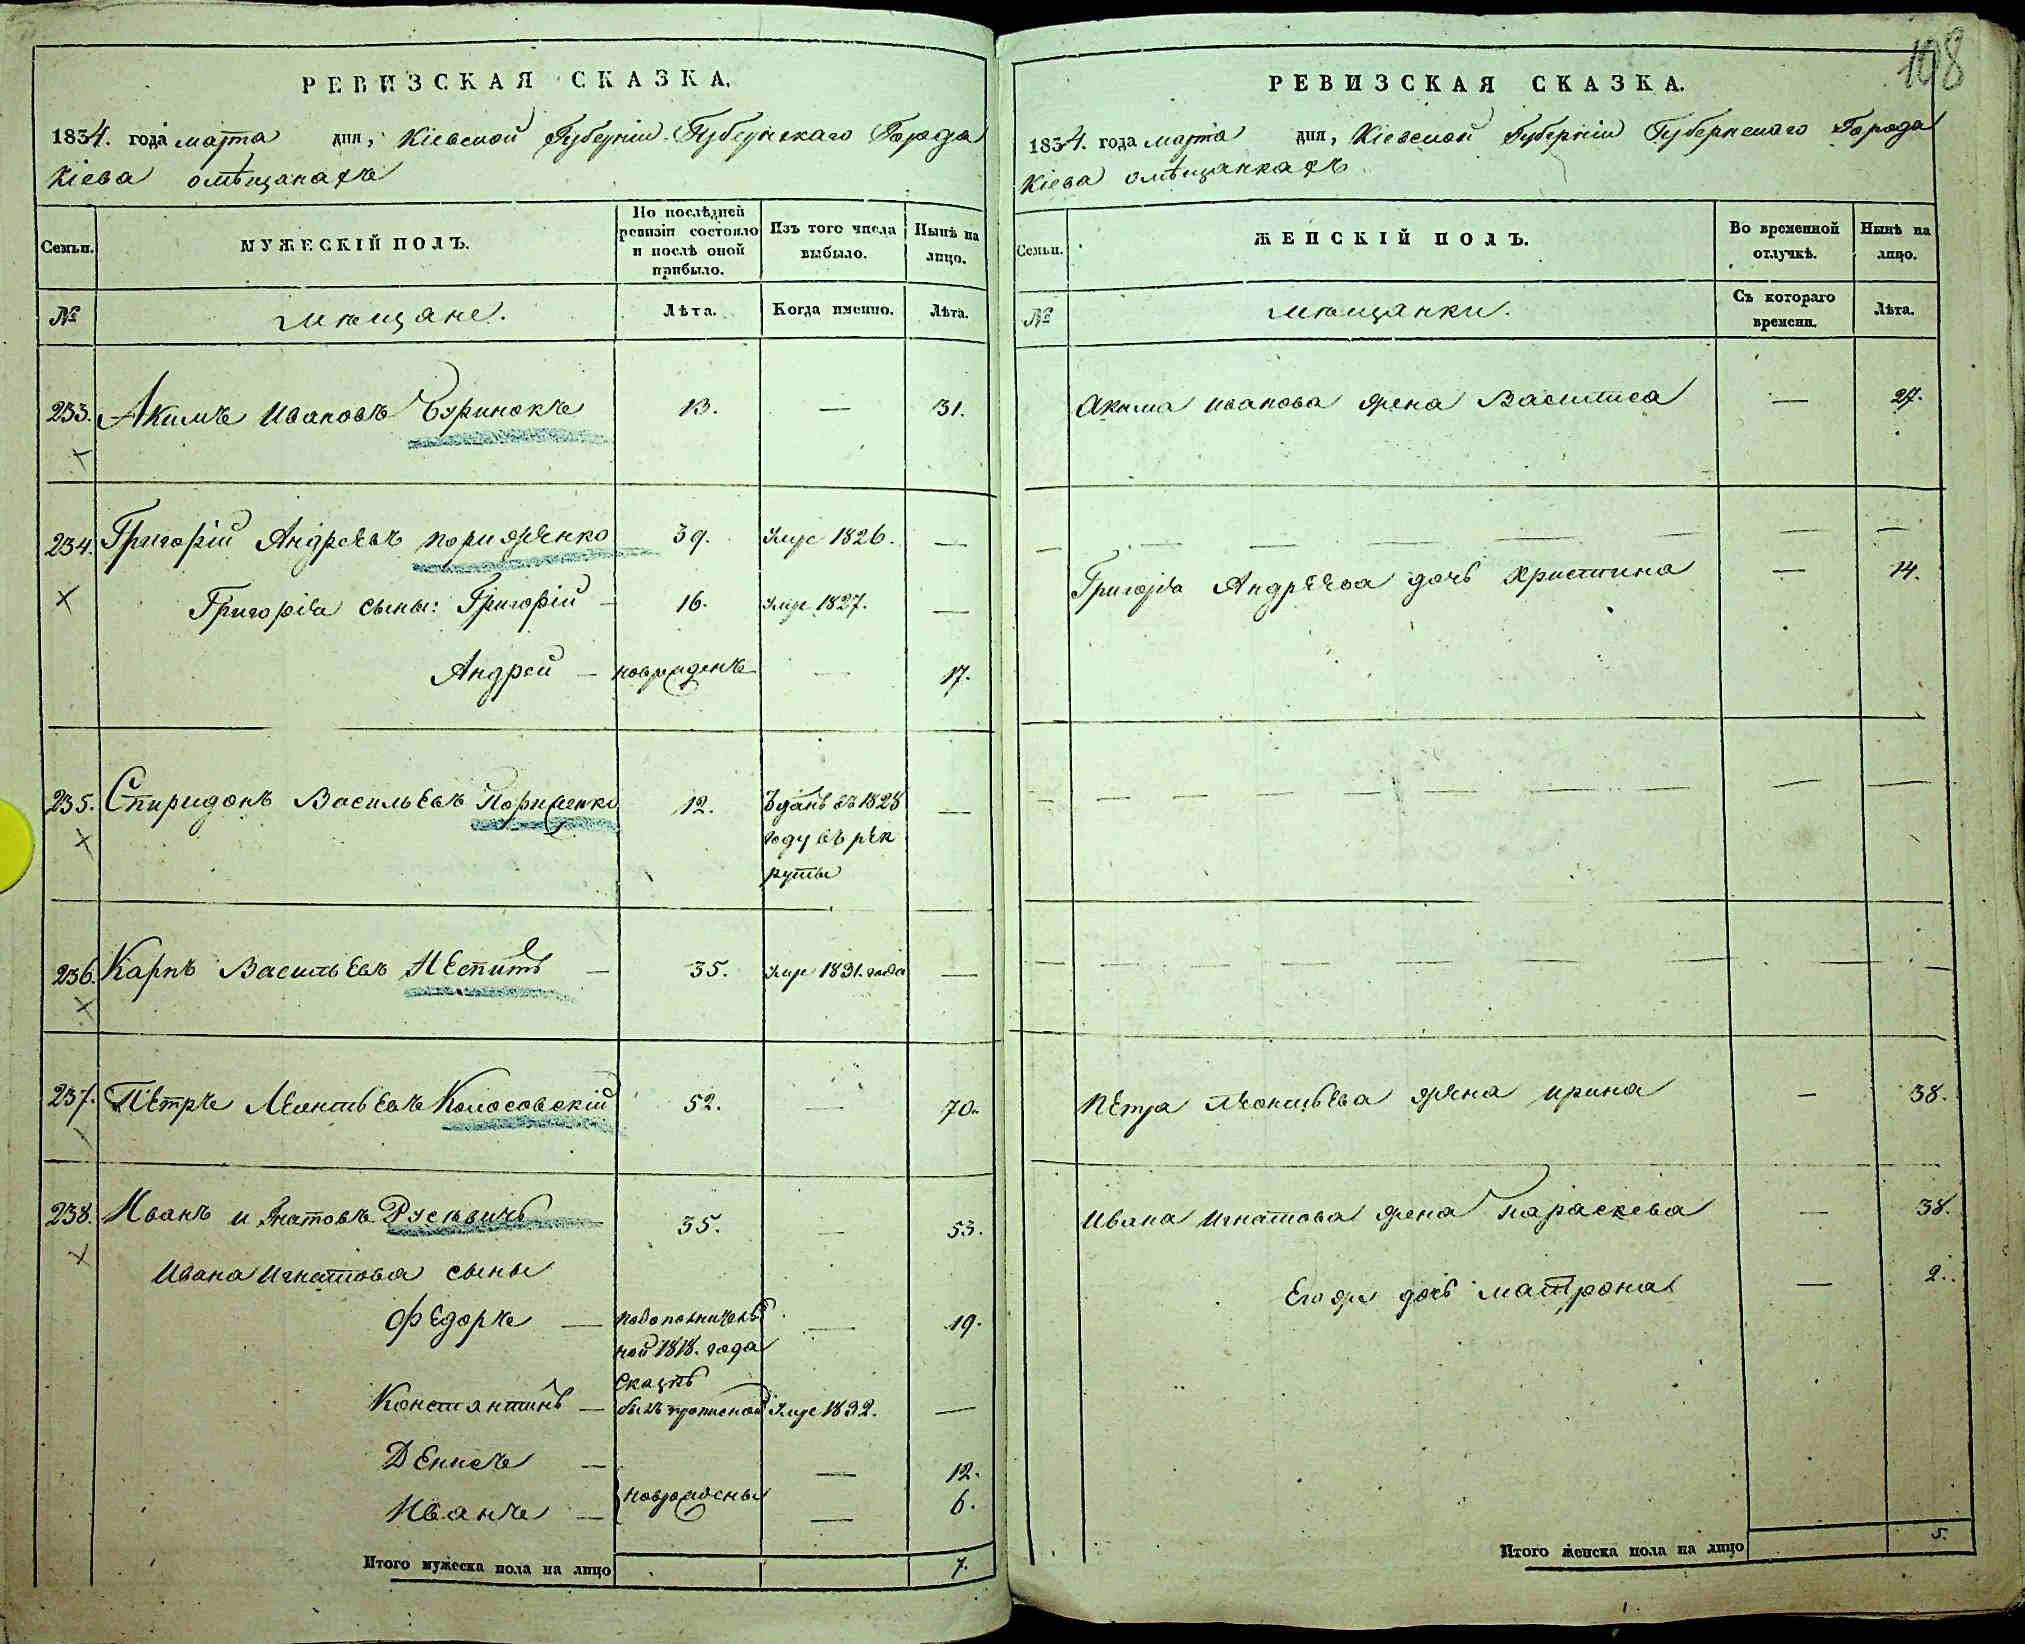 108
РЕВИЗСКАЯ СКАЗКА.
1834. года марта дня, Кіевской Губерніи Губернскаго Города
Кіева омѣщанахъ
Семьи.
МУЖЕСКІЙ ПОЛЪ.
По послѣдней ревизіи состояло и послѣ оной прибыло.
Изъ того числа выбыло.
Нынѣ на лицо.
№
мѣщане.
Лѣта.
Когда именно.
Лѣта.
233. Акимъ Ивановъ 13. — 31.
234. Григорій Андреевъ 39. Умре 1826. —
Григорія сыны: Григорій — 16. Умре 1827. —
Андрей — новрожденъ — 17.
235. Спиридонъ Васильевъ 12. Зданъ въ 1828 —
году въ рек
руты
236. Карпъ Васильевъ — 35. Умре 1831. года —
237. Петръ Леонтьевъ Колосовскій 52. — 70.
238. Иванъ Игнатовъ 35. — 53.
Ивана Игнатова сыны
Федоръ — — 19.
ной 1818. года
сказкѣ
Константинъ — былъ прописной Умре 1832. —
Денисъ — — 12.
новрожденые
Иванъ — — 6.
Итого мужеска пола на лицо 7.
РЕВИЗСКАЯ СКАЗКА.
1834. года марта дня, Кіевской Губерніи Губернскаго Города
Кіева омѣщанкахъ
Семьи.
ЖЕНСКІЙ ПОЛЪ.
Во временной отлучкѣ.
Нынѣ на лицо.
№
мѣщанки.
Съ котораго времени.
Лѣта.
Акима Иванова жена Василиса — 27.
Григорія Андреева дочь Христина — 14.
Петра Леонтьева жена Ирина — 38.
Ивана Игнатова жена Параскева — 38.
Его же дочь Матрона — 2.
Итого женска пола на лицо 5.